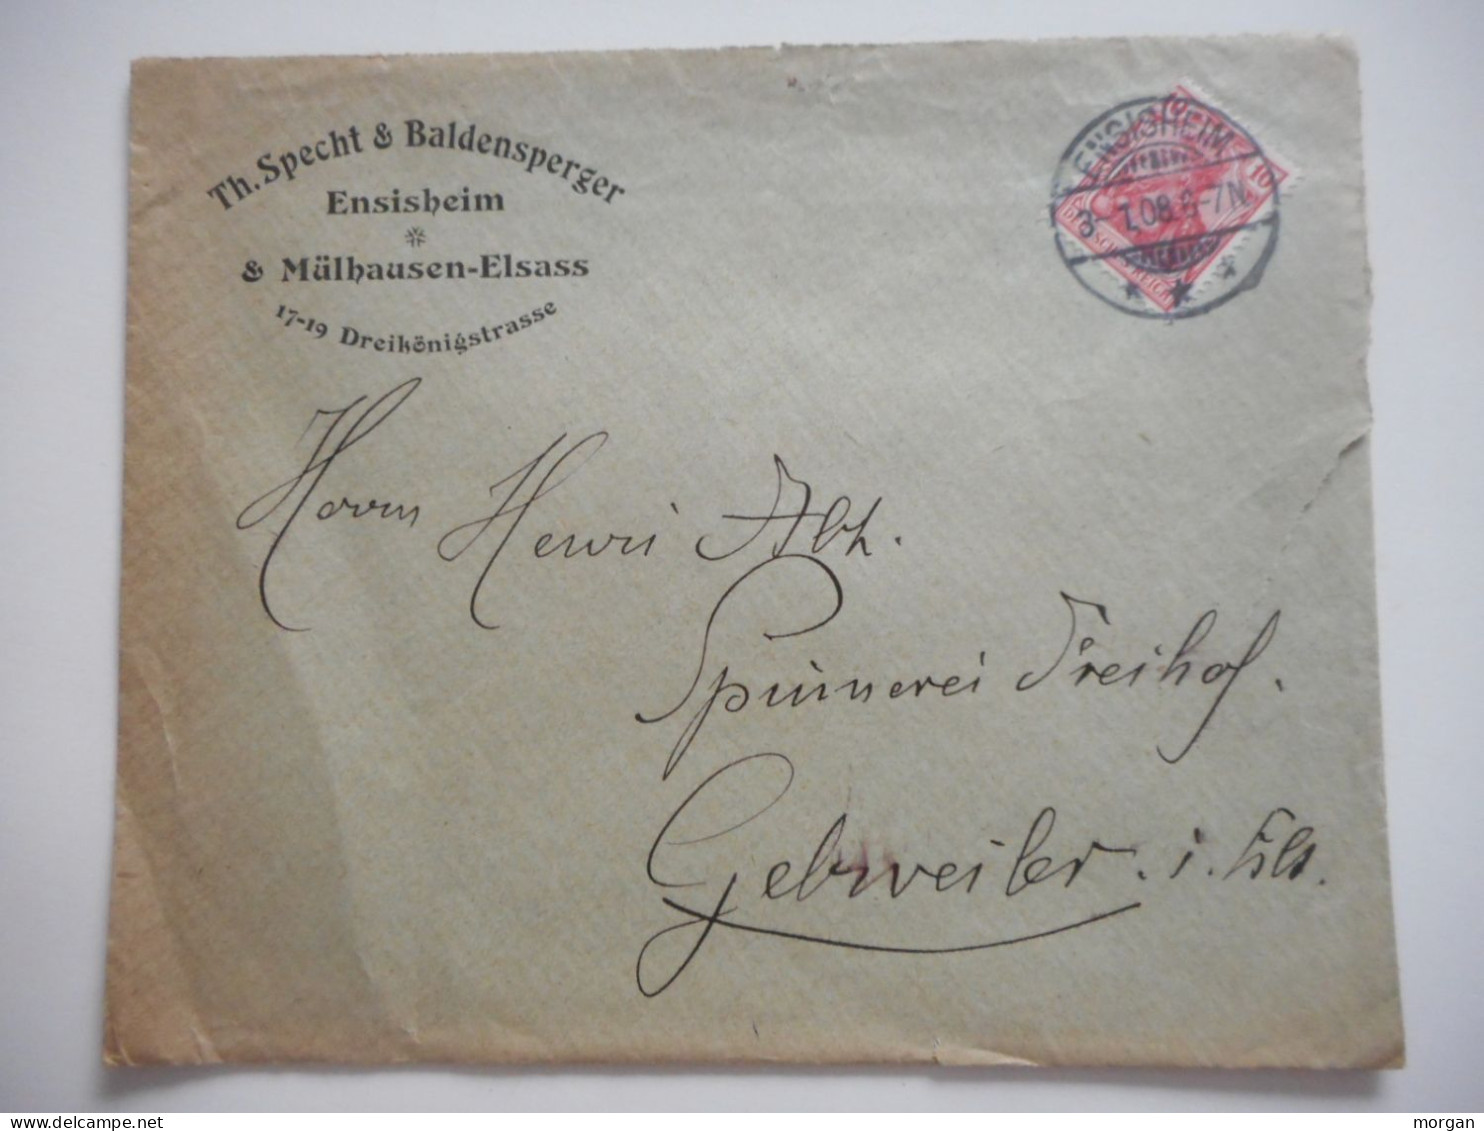 Th. Specht & Baldensperger
Ensisheim
& Mülhausen-Elsass
17-19 Dreikönigstrasse
ENSISHEIM
3-1.08.6-7N.
10
DEUTSCHES REICH
Herrn Henri Abt.
Spinnerei Freihof.
Gebweiler. i. Els.
morgan